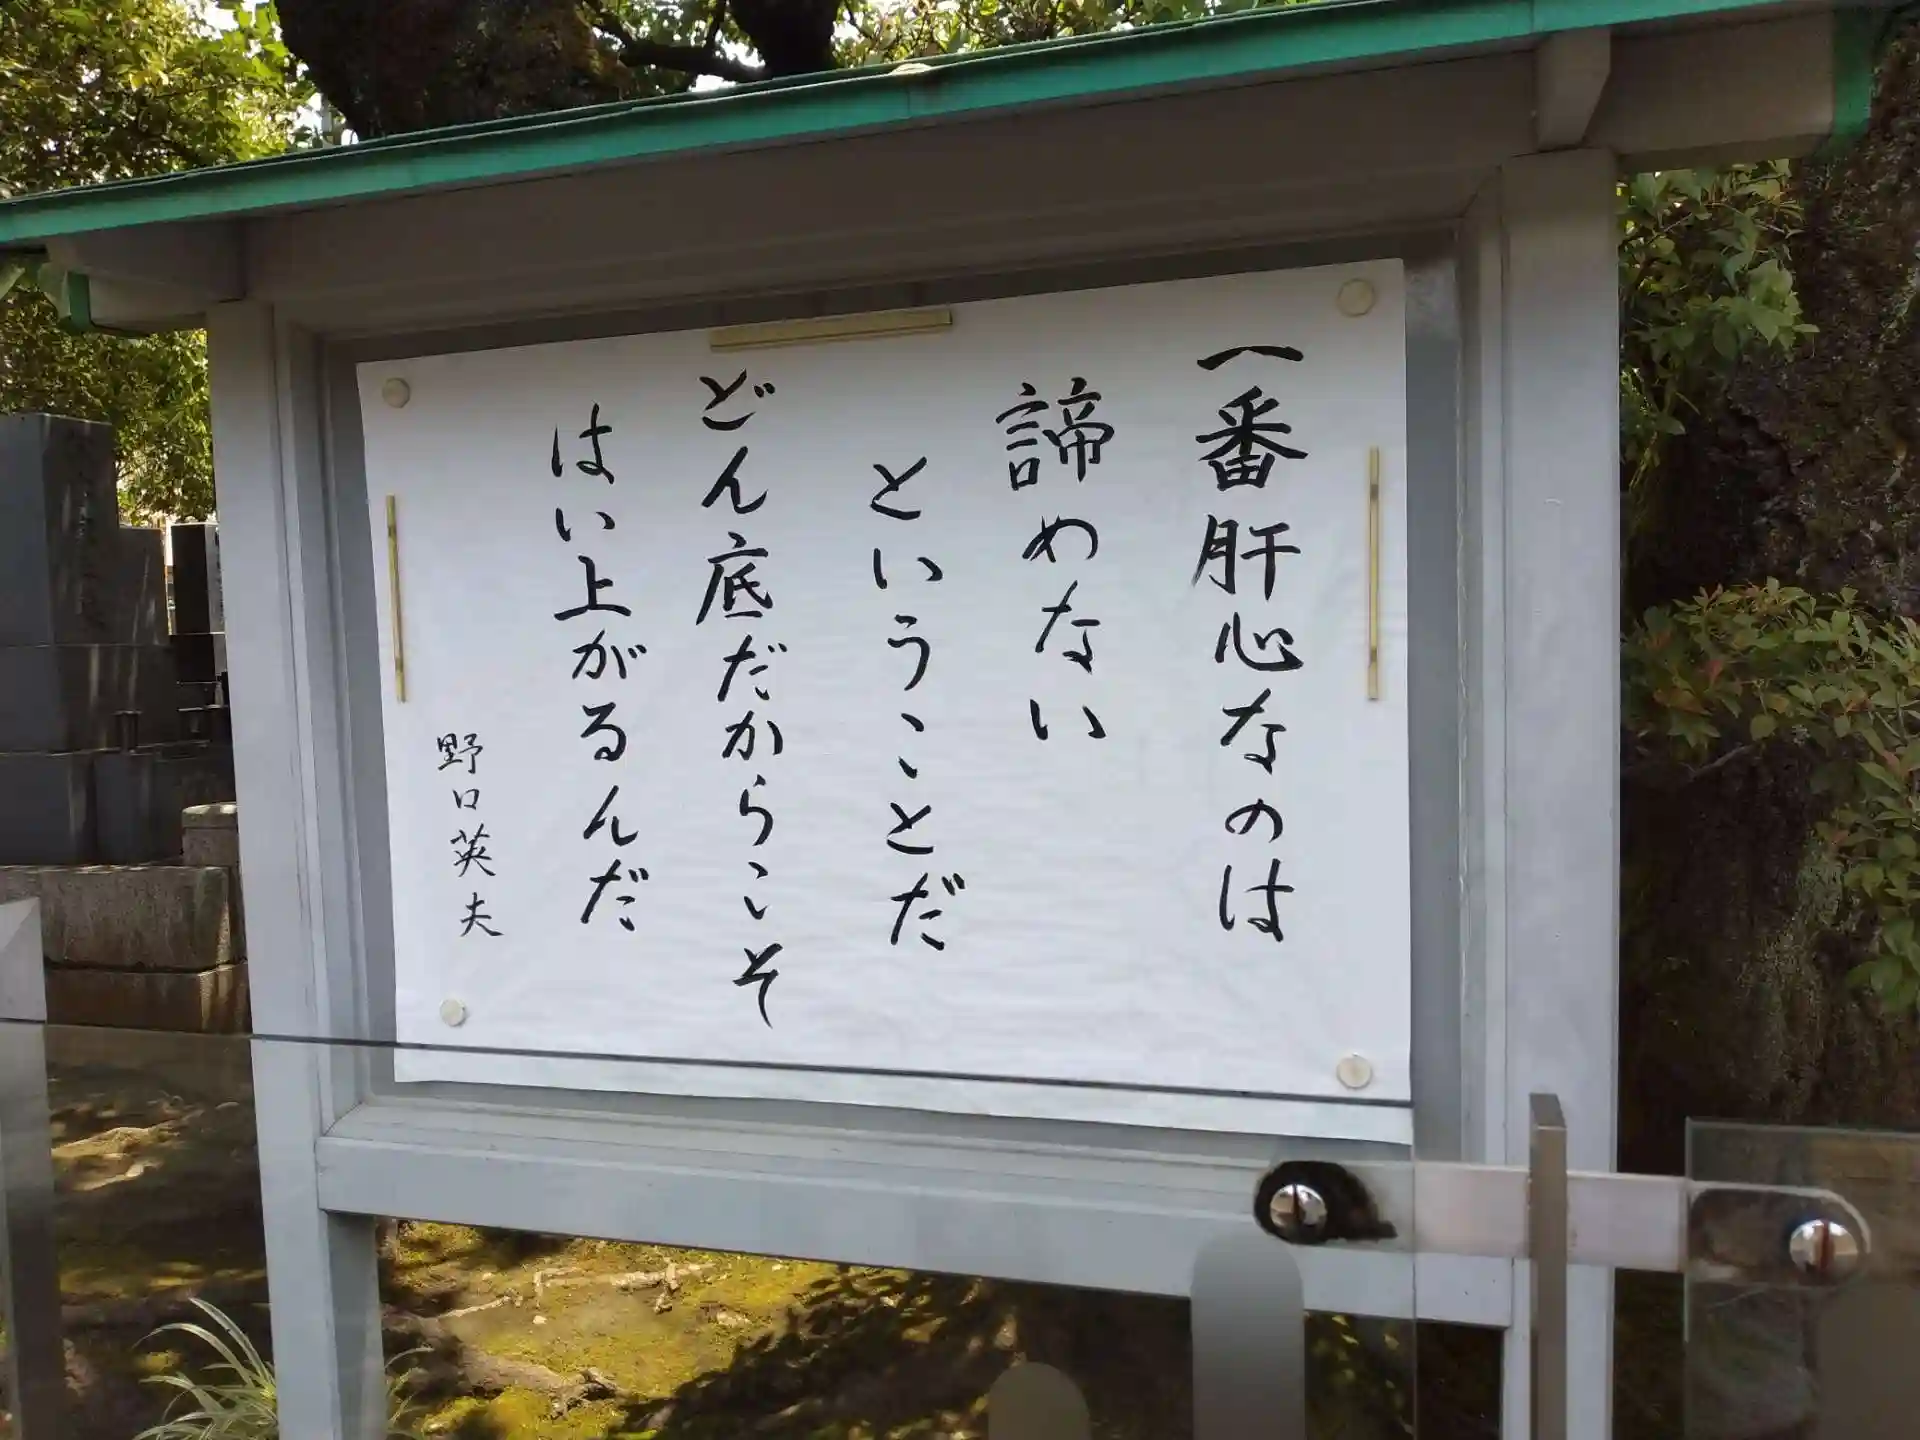 一番肝心なのは
諦めない
ということだ
どん底だからこそ
はい上がるんだ
野口英夫